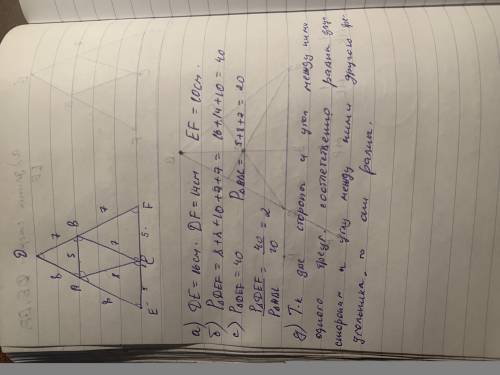 D
8 7
A 5 B
8 8 7 7
E 5 C 5 F
a) DE = 16см. DF = 14см EF = 10см.
б) P△DEF = 8+8+10+7+7 = 16+14+10 = 40
c) P△DEF = 40 P△ABC = 5+8+7 = 20
P△DEF / P△ABC = 40/20 = 2
д) Т.к две стороны и угол между ними
одного треуг. соответственно равны двум
сторонам и углу между ними другого тре-
угольника, то они равны.